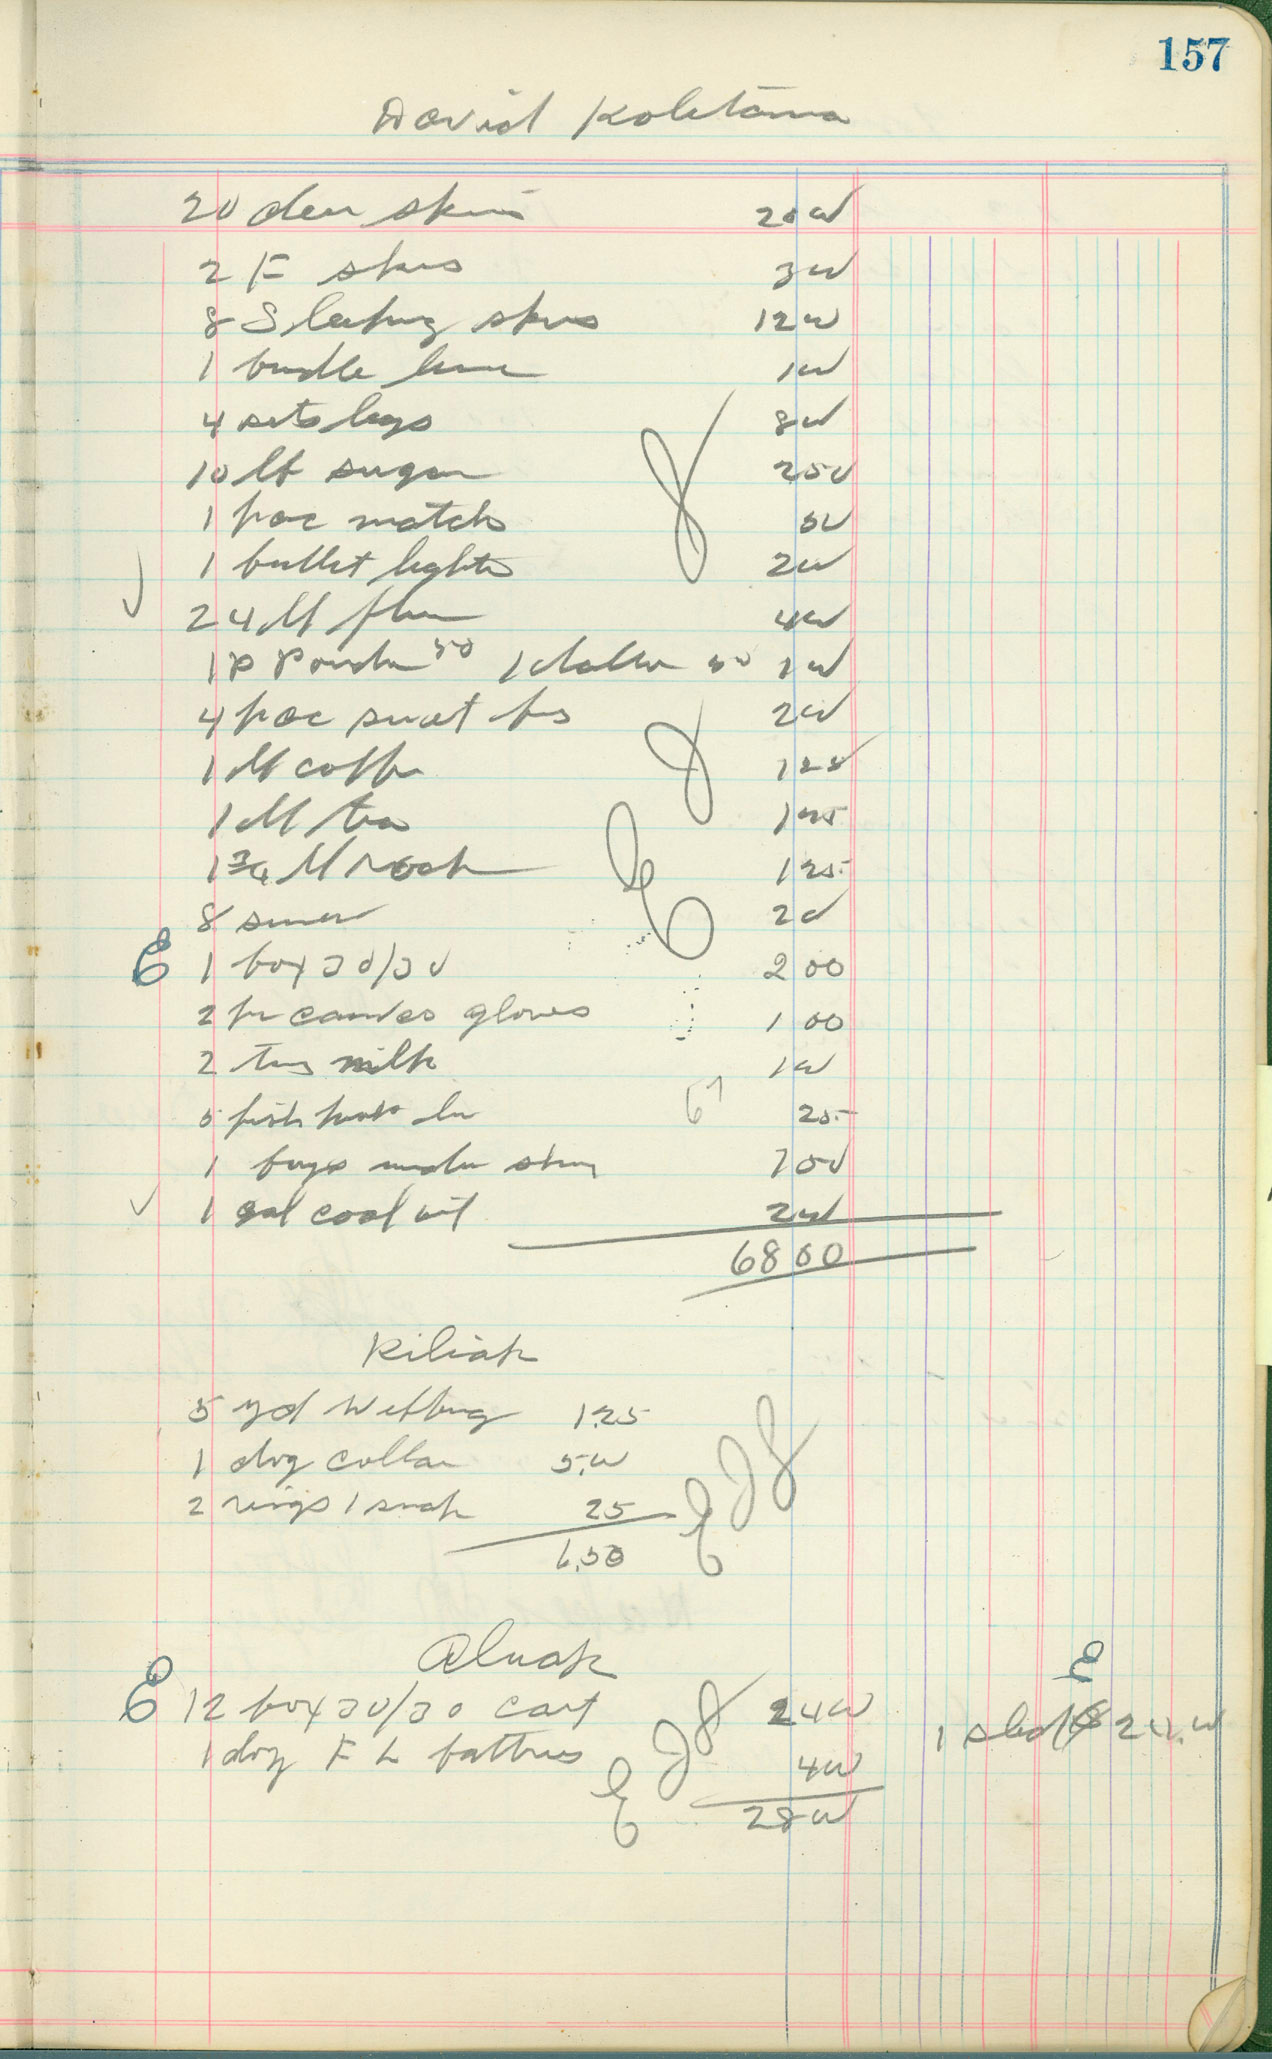 157
David Koletäma
20 deer skins 20 00
2 F skins 3 00
8 Sleeping skins 12 00
1 bundle 1 00
4 sets legs 8 00
10 lb sugar 2 50
1 pac match 50
1 bullet lighter 2 00
24 lb flour 4 00
1 P Powder 50 1 50 1 00
4 pac sweet bis 2 00
1 lb coffee 1 25
1 lb tea 1 25
1 3/4 lb rock 1 25
8 sinew 20
E 1 box 30/30 2 00
2 pr canvas gloves 1 00
2 tins milk 1 00
5 fish 25
1 boys under 1 50
1 gal coal oil 2 00
68 00
Kiliak
5 yd Webbing 1.25
1 dog collar 5.00
2 rings 1 snap 25
6.50
Aluak
E 12 box 30/30 cart 24 00
E
1 sled 20.00
1 doz F L batteries 4 00
28 00